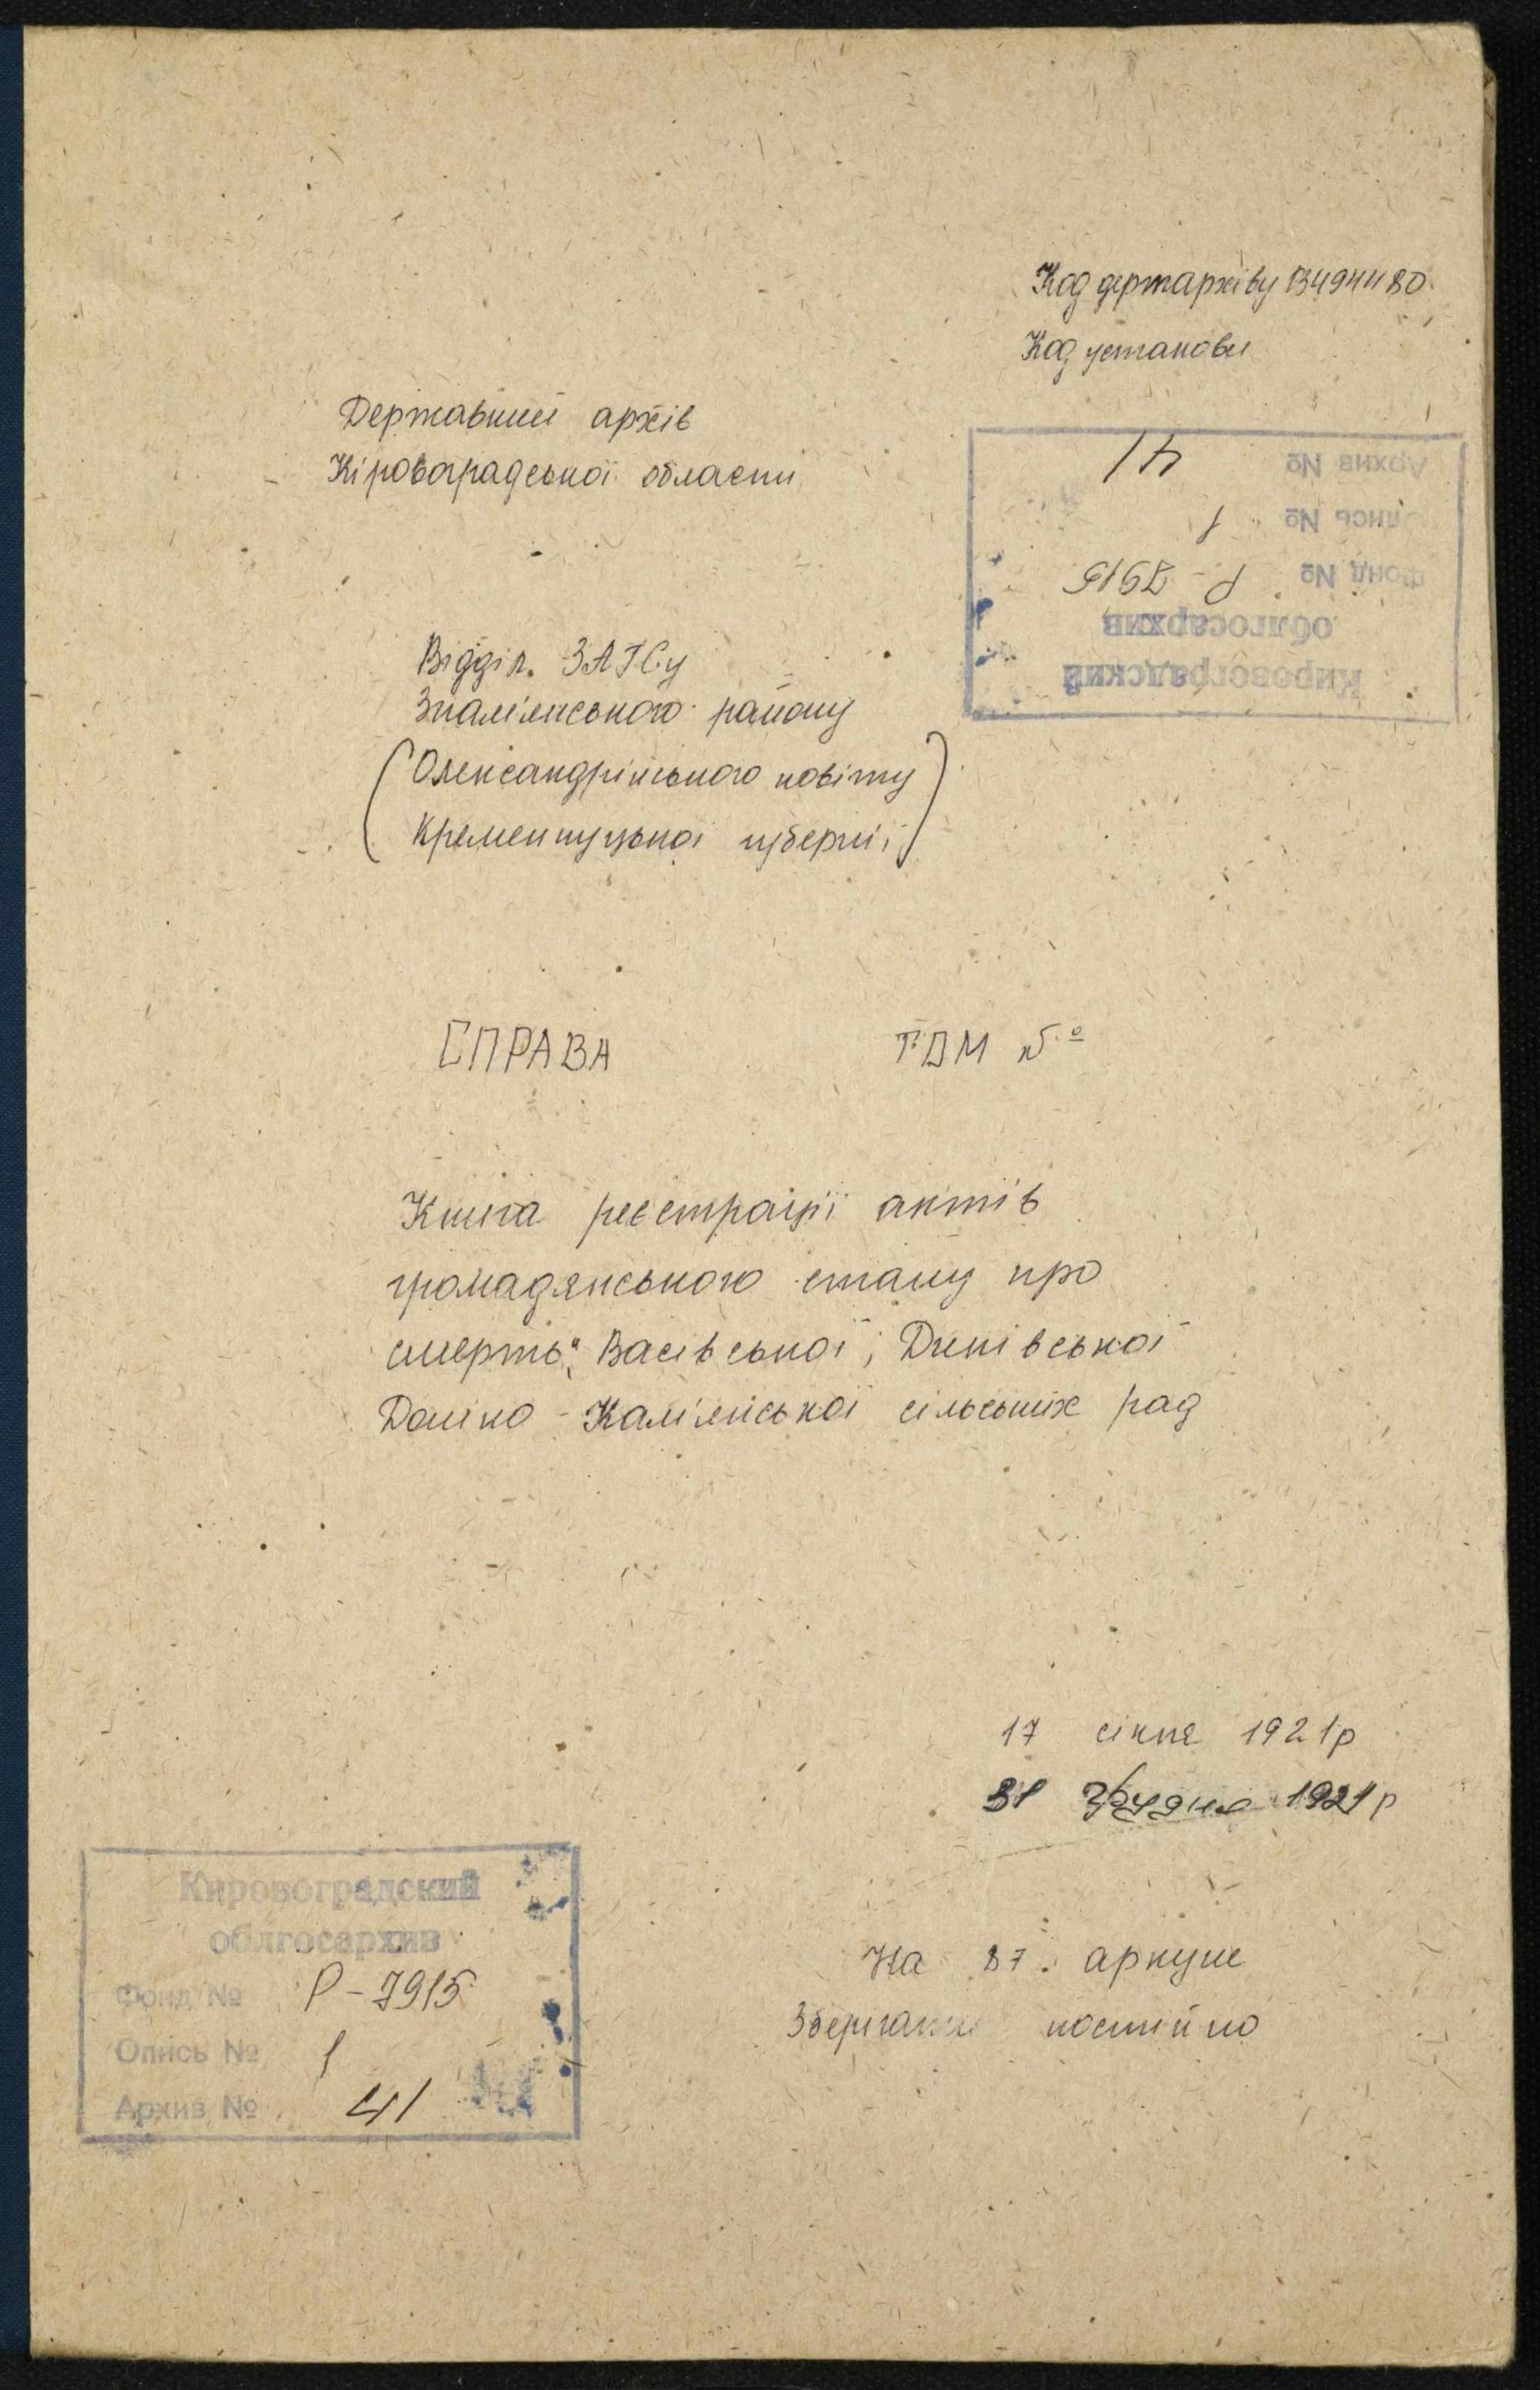 Код держархіву 03494480
Код установи
Державний архів
Кіровоградської области
Архив № 41
Опись № 1
Фонд № Р-7915
облгосархив
Кировоградский
Відділ ЗАГСу
Знам'янського району
(Олександрійського повіту
Кременчуцької губернії)
СПРАВА ТОМ №
Книга реєстрації актів
громадянського стану про
смерть, Васівської, Диківської
Даліко - Кам'янської сільських рад
17 січня 1921р
31 Грудня 1921р
Кировоградский
облгосархив
Фонд № Р-7915
Опись № 1
Архив № 41
На 87. аркуше
Зберігати постійно